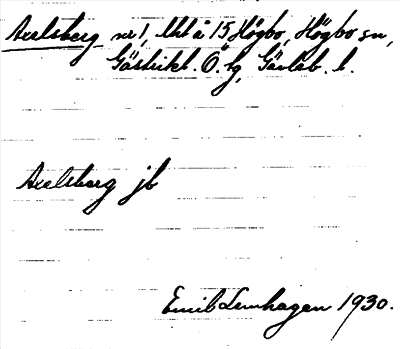 Axelsberg nr 1, Uht å 15 Högbo, Högbo sn,
Gästrikl. Ö. hg, Gävleb. l.
Axelsberg jb
Emil Lennhagen 1930.